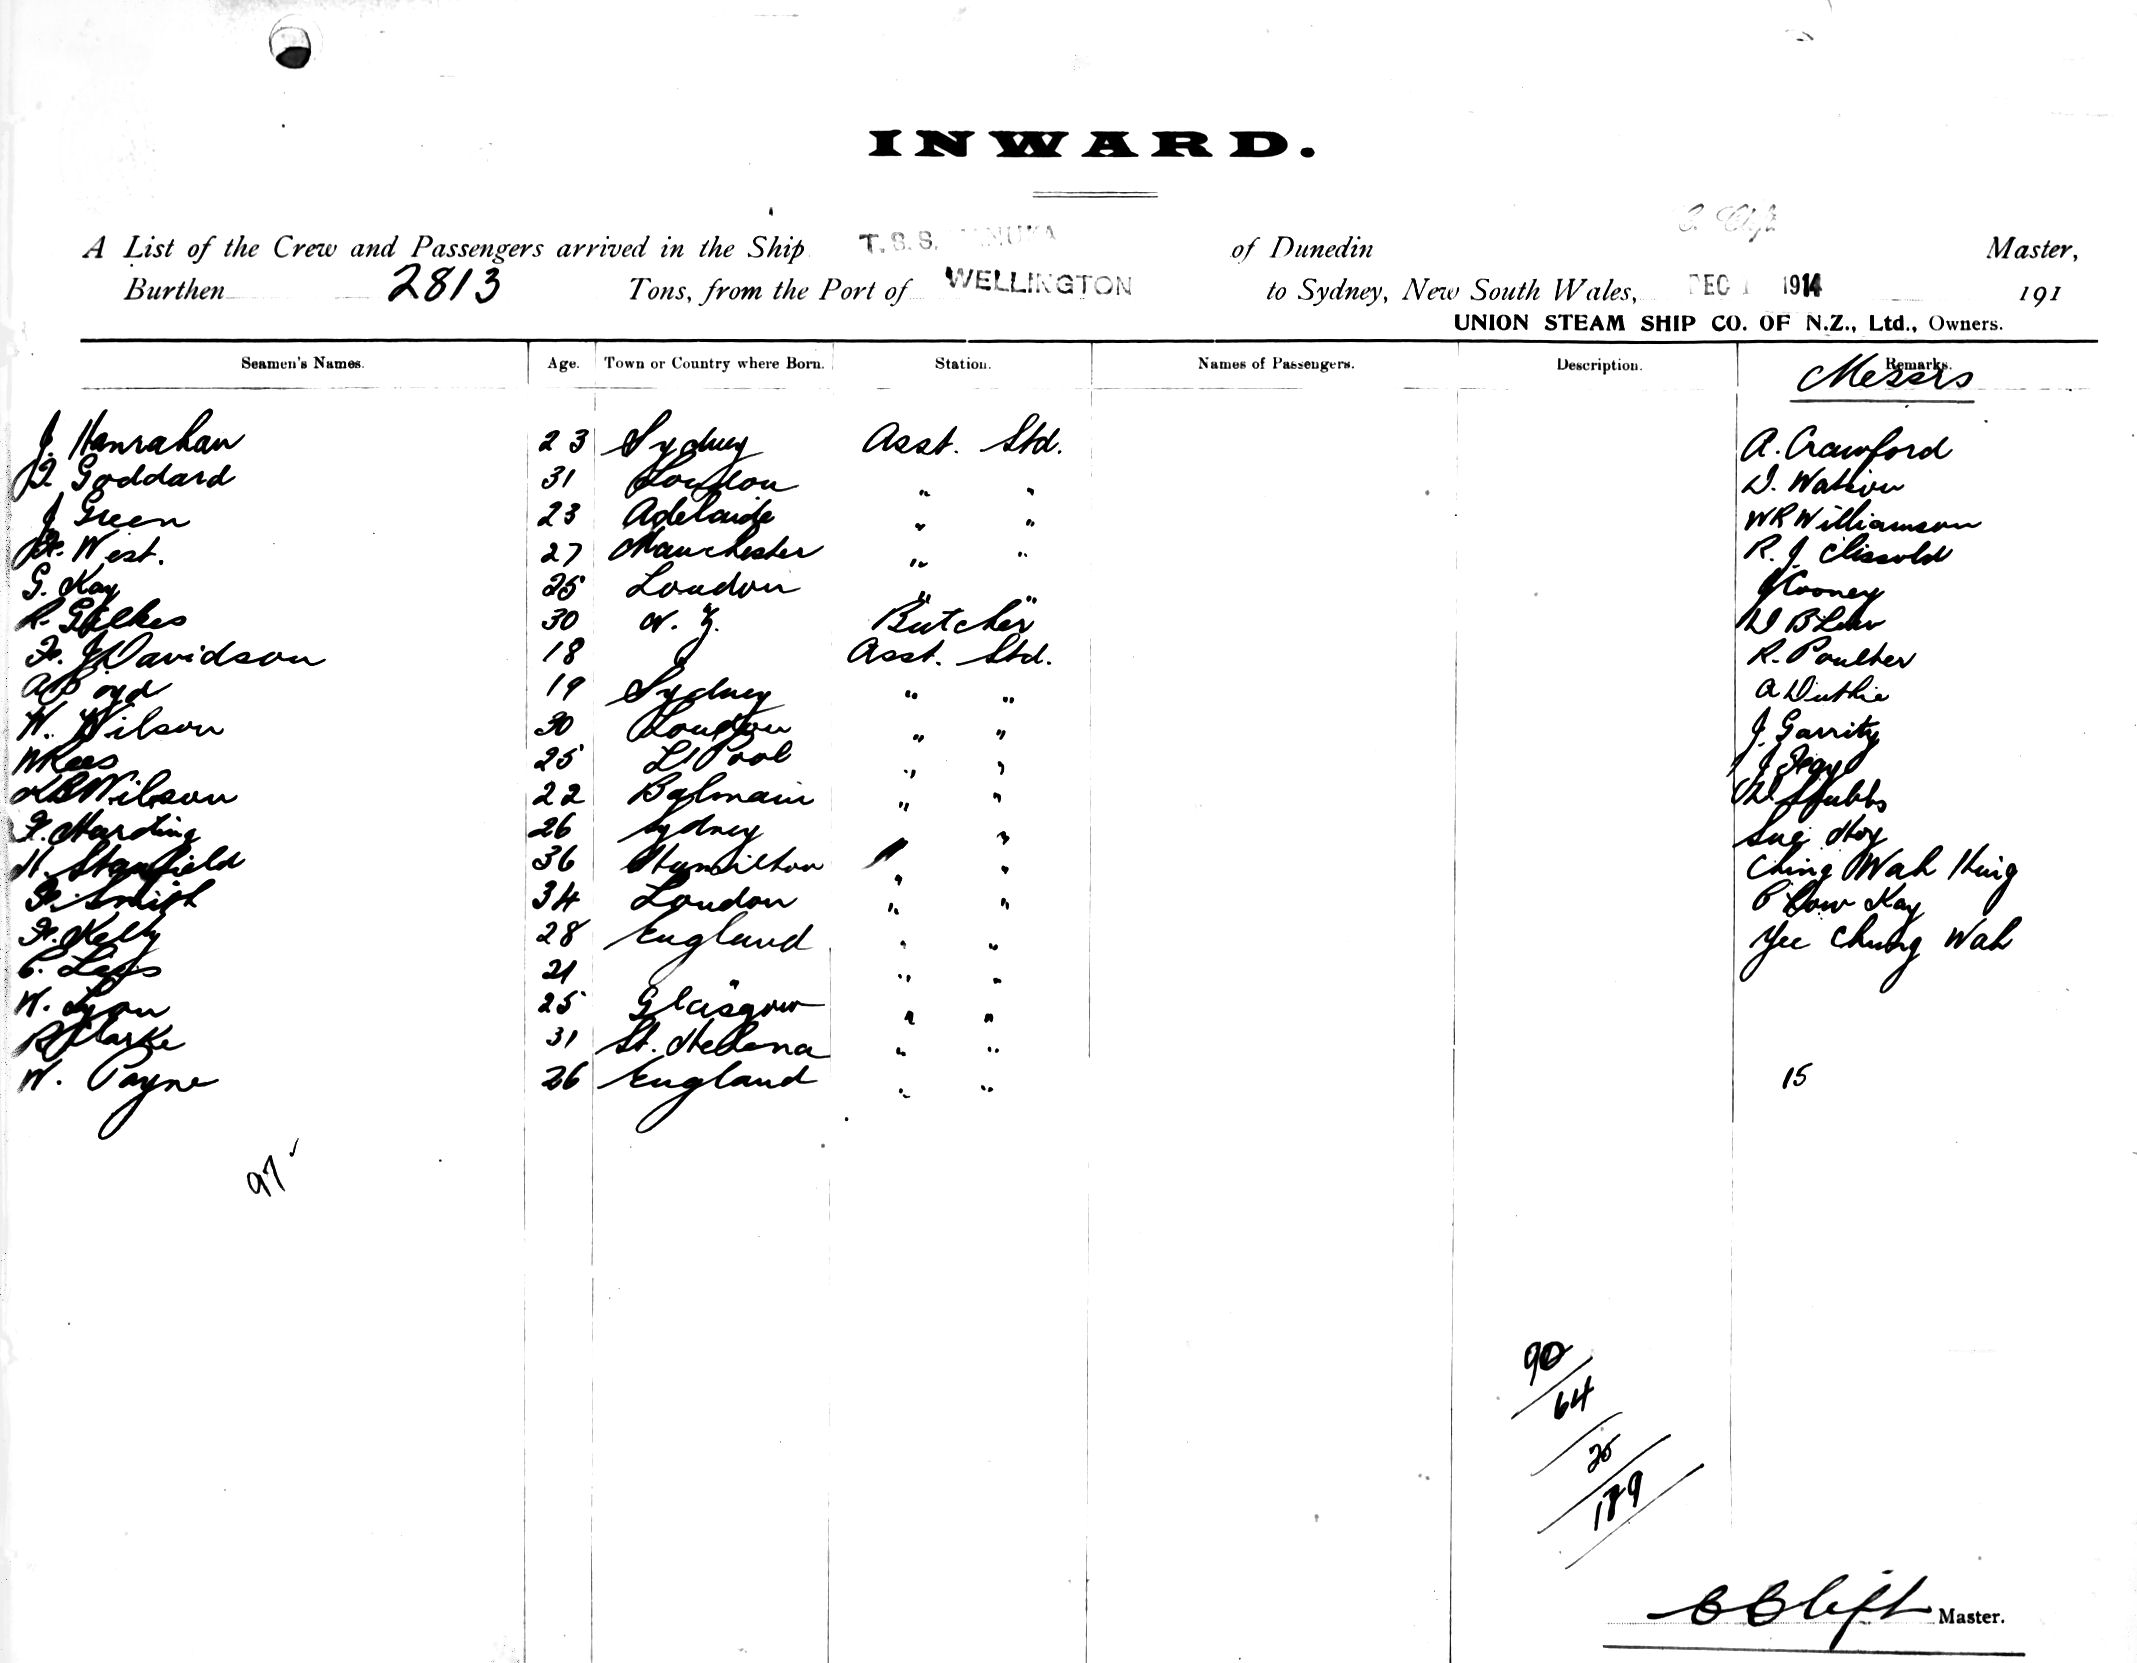 INWARD.
C. Clift
A List of the Crew and Passengers arrived in the Ship T.S.S. MANUKA of Dunedin Master,
Burthen 2813 Tons, from the Port of WELLINGTON to Sydney, New South Wales, DEC 1 1914 191
UNION STEAM SHIP CO. OF N.Z., Ltd., Owners.
Seamen's Names. Age. Town or Country where Born. Station. Names of Passengers. Description. Remarks.
Messrs
J. Hanrahan 23 Sydney Asst. Std. A. Crawford
Goddard 31 London " " D. Watson
J Green 23 Adelaide " " WR Williamson
West. 27 Manchester " " R. J. Clissold
G. Kay 25 London " " J Cooney
R. Gilkes 30 N. Z. Butcher D B Law
F. J Davidson 18 Asst. Std. R. Poulter
A Boyd 19 Sydney " " A Duthie
W. Wilson 30 London " " J. Garrity
W Rees 25 L'Pool " " J
Wilson 22 Balmain " " D Stubbs
F. Harding 26 Sydney " Sue Hoy
H. Stanfield 36 Hamilton " " Ching Wah Hing
F. Smith 34 London " " Low Kay
F. Kelly 28 England " " Yee Chung Wah
C. Lees 21 " " "
W. Lyon 25 Glasgow " "
R Clarke 31 St. Helena " "
W. Payne 26 England " " 15
97
90
64
189
C Clift Master.